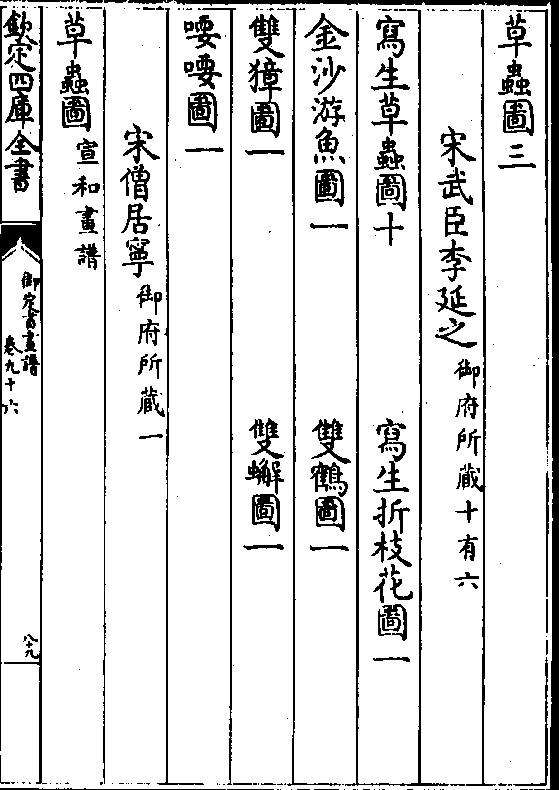 草蟲圖三
宋武臣李延之御府所藏十有六
寫生草蟲圖十　寫生折枝花圖一
金沙游魚圖一　雙鶴圖一
雙獐圖一　雙蠏圖一
喓喓圖一
宋僧居寧御府所藏一
草蟲圖宣和畫譜
欽定四庫全書　御定書畫譜卷九十六　八十九